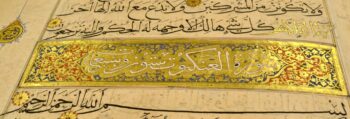 ولا تكونن من ولا تدع مع الله
كل شيء هالك إلا وجهه له الحكم وإليه ترجعون
سورة العنكبوت ستون وتسع
بسم الله الرحمن الرحيم